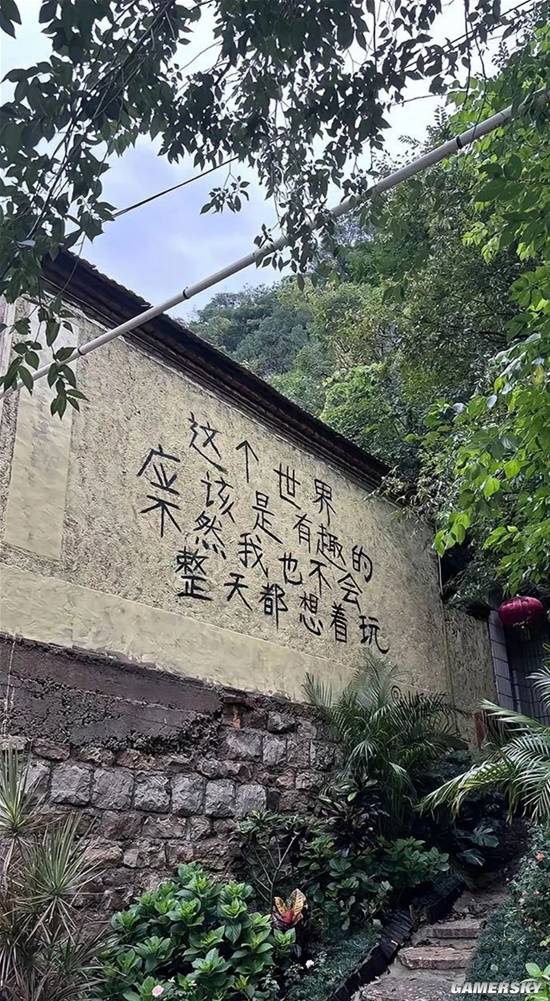 这个世界
应该是有趣的
不然我也不会
整天都想着玩
GAMERSKY